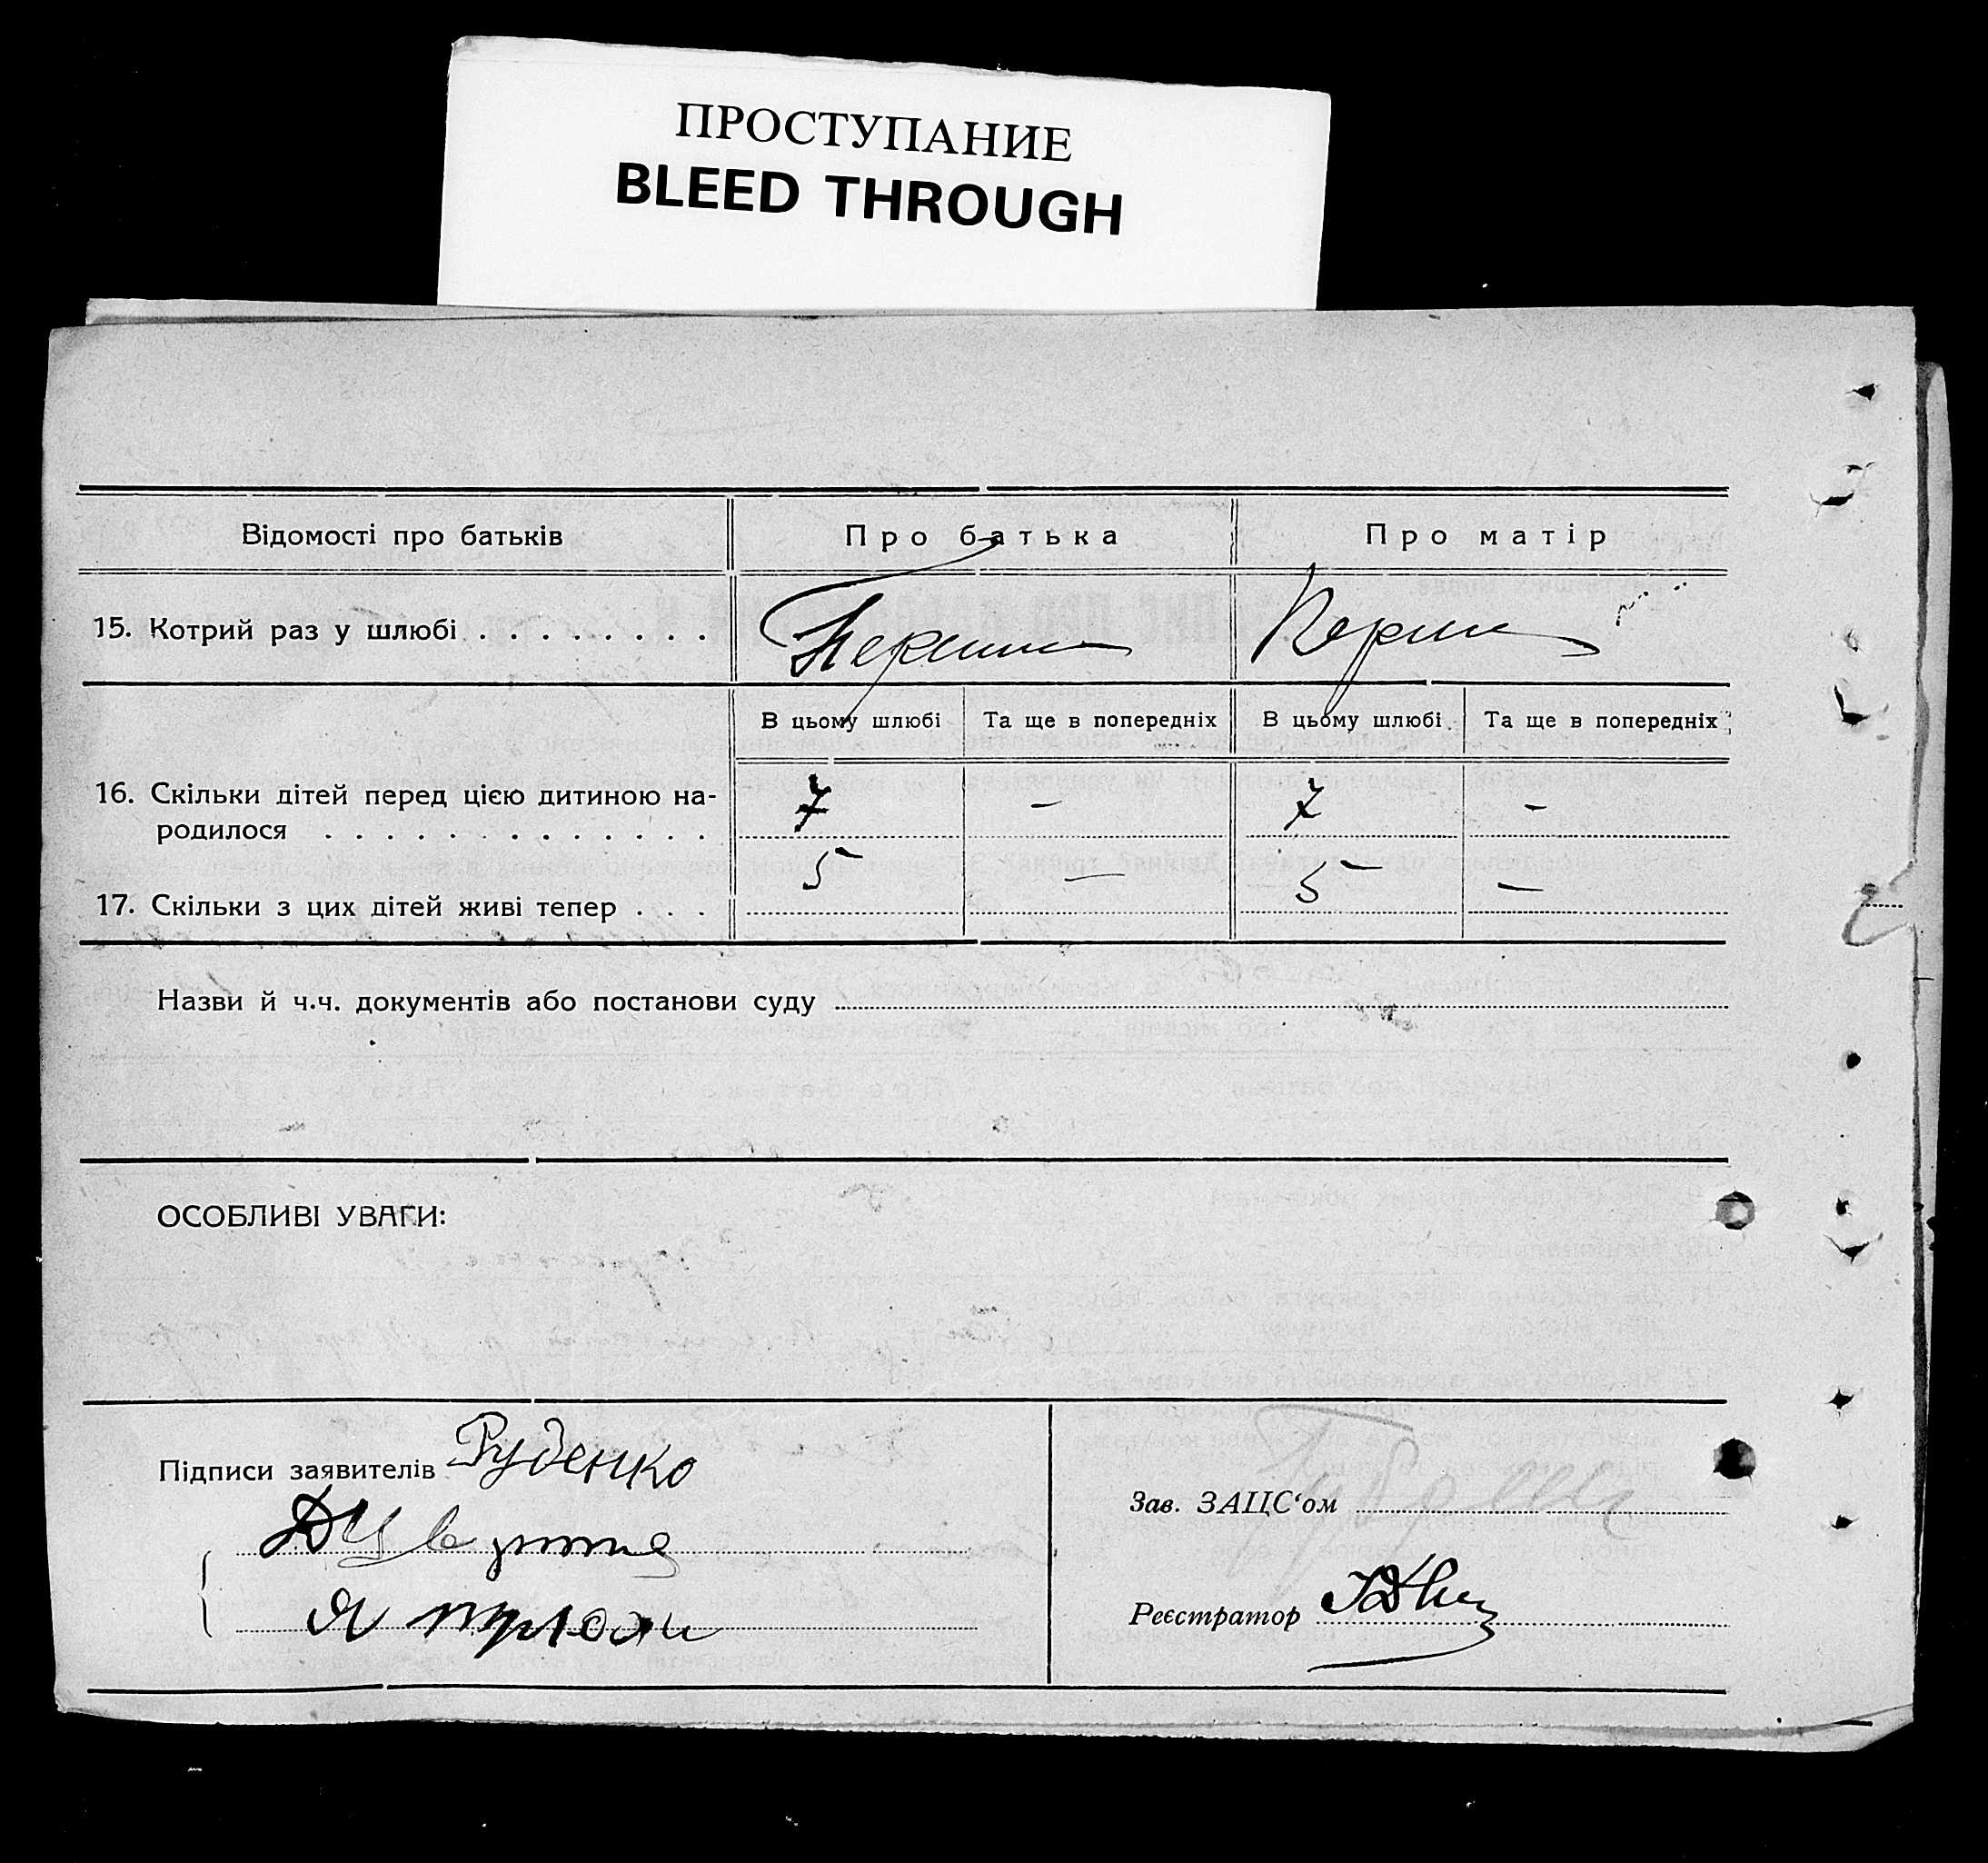 ПРОСТУПАНИЕ
BLEED THROUGH
Відомості про батьків Про батька Про матір
15. Котрий раз у шлюбі . . . . . . . .
В цьому шлюбі Та ще в попередніх В цьому шлюбі Та ще в попередніх
16. Скільки дітей перед цією дитиною на-
родилося . . . . . . . . . . . . 7 - 7 -
17. Скільки з цих дітей живі тепер . . . 5 — 5 —
Назви й ч.ч. документів або постанови суду
ОСОБЛИВІ УВАГИ:
Підписи заявителів Руденко
Зав. ЗАЦС'ом
Реєстратор